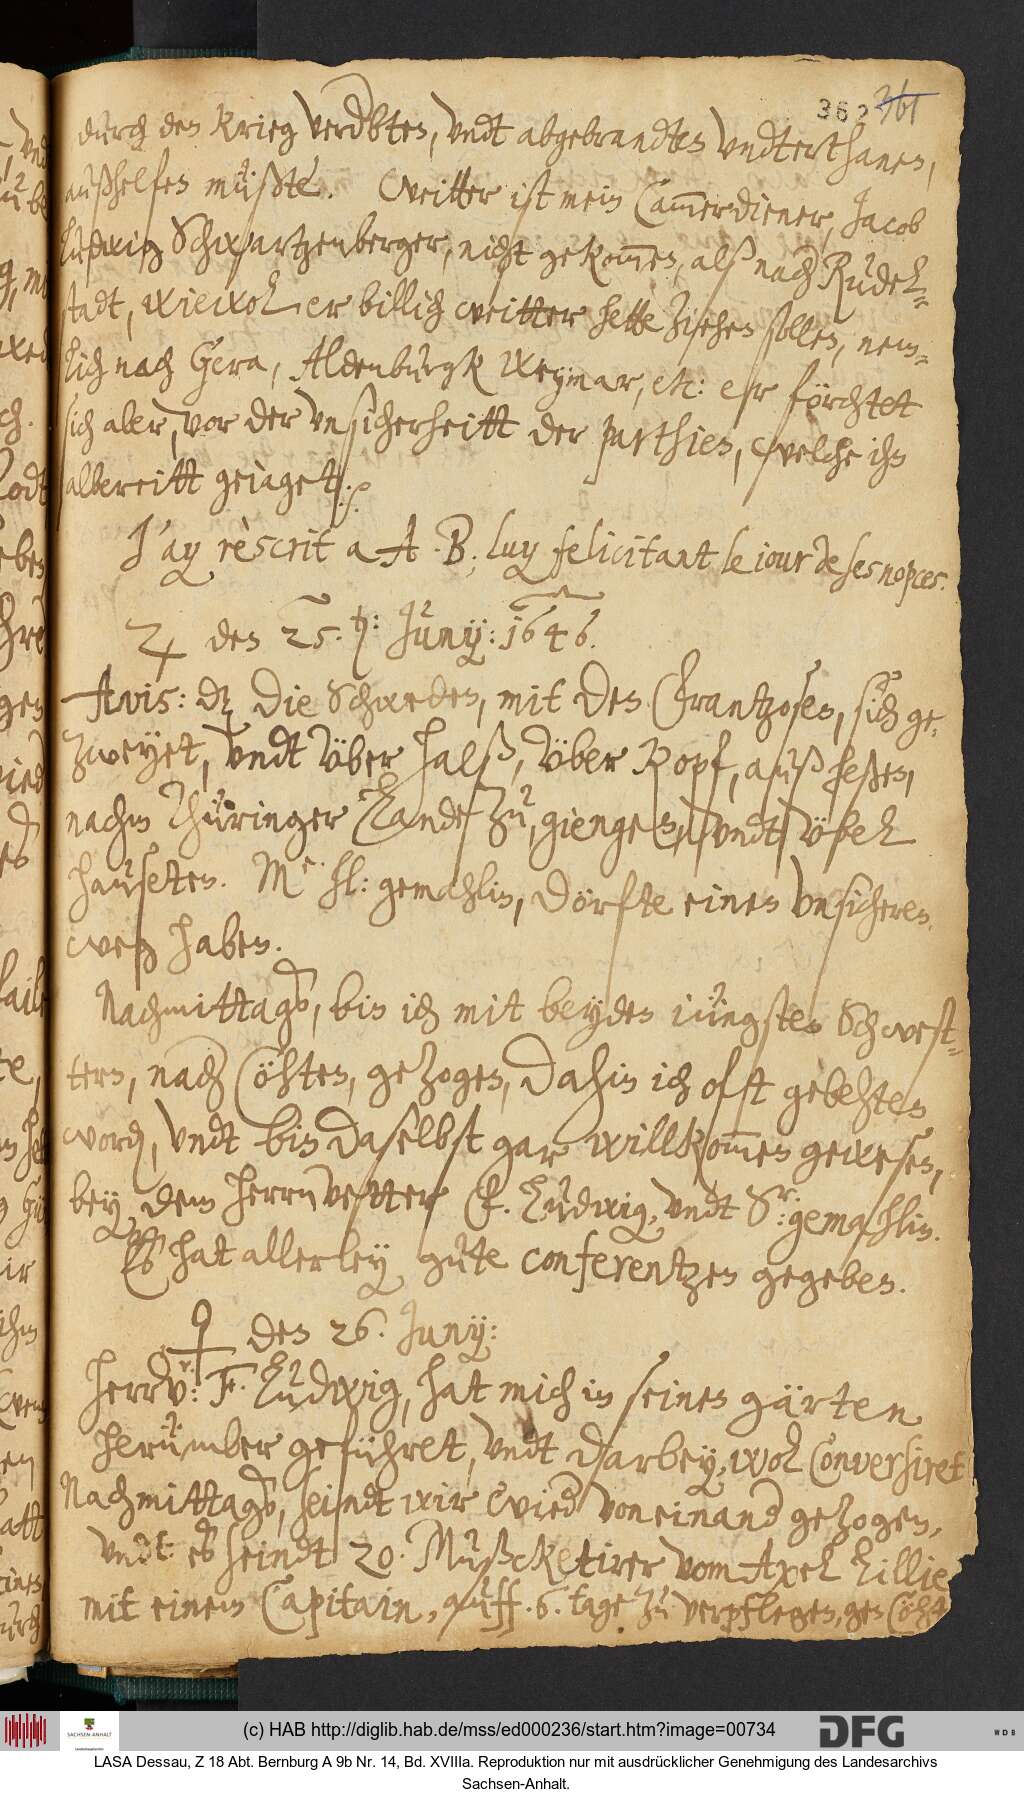 362 361
durch den Krieg verdbten, vndt abgebrandten vndterthanen,
außhelfen müßte. Weitter ist mein Cammerdiener, Jacob
Ludwig Schwartzenberger, nicht gekommen, alß nach Rudel¬
stadt, wiewol er billich weitter hette ziehen sollen, nem¬
lich nach Gera, Aldenburgk Weymar, etc: er förchtet
sich aber, vor der vnsicherheitt der parthien, welche ihn
albereitt geiaget. /.
J'ay rèscrit a A. B. luy felicitant le iour de ses nopces.
♃ den 25. ten: Juny: 1646.
Avis: dz die Schweden, mit den Frantzosen, sich ge¬
zweyet, vndt vber halß, vber Kopf, auß heßen,
nachm Thüringer Lande zu, giengen, vndt vbel
hauseten. Me. hl: gemahlin, dörfte einen vnsicheren
weg haben.
Nachmittags, bin ich mit beyden iüngsten Schwest¬
tern, nach Cöhten, gezogen, dahin ich oft gebehten
worden, vndt bin daselbst gar willkommen gewesen,
bey dem herrn vettter F. Ludwig, vndt Sr: gemahlin.
Es hat allerley gute conferentzen gegeben.
♀ den 26. Juny:
Herr Vr: F. Ludwig, hat mich in seinen gärten
herumber geführet, vndt darbey, wol Conversiret
Nachmittags, seindt wir wied von einand gezogen,
vndt es seindt 20. Mußcketirer vom Axel Lillie
mit einem Capitain, auff .6. tage zu verpflegen, gen Cöht
(c) HAB http://diglib.hab.de/mss/ed000236/start.htm?image=00734
SACHSEN-ANHALT
DFG
WDB
LASA Dessau, Z 18 Abt. Bernburg A 9b Nr. 14, Bd. XVIIIa. Reproduktion nur mit ausdrücklicher Genehmigung des Landesarchivs
Sachsen-Anhalt.